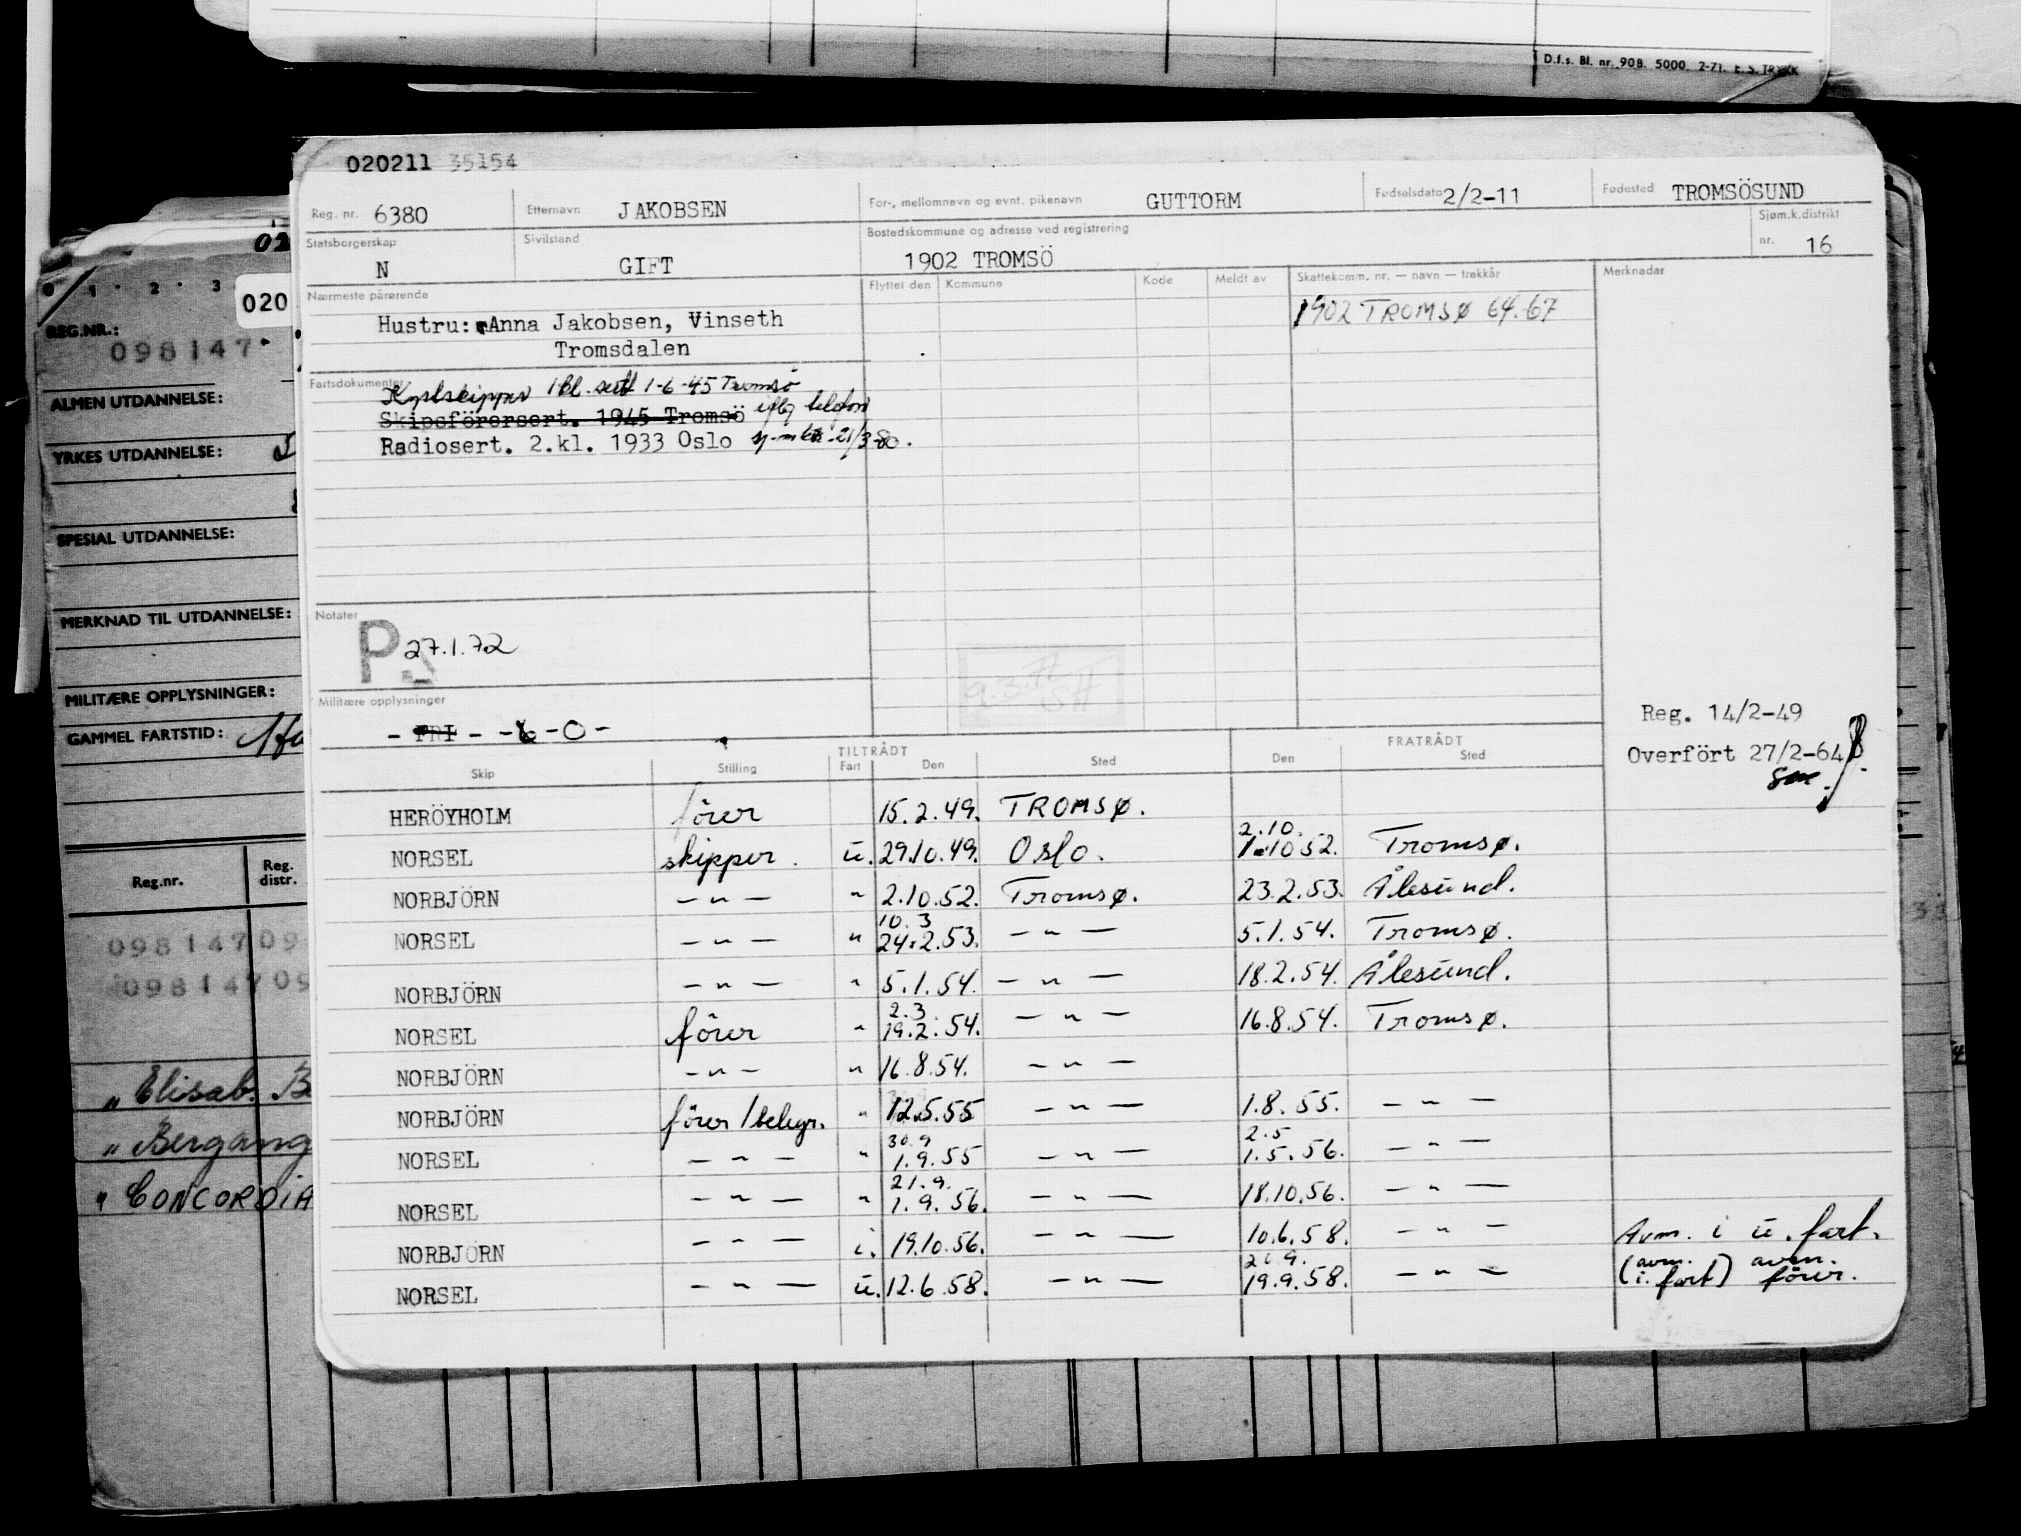 D.f.s. Bl. nr. 90B. 5000. 2-71. E. S. TRYKK
020211 35154
Reg. nr. 6380 Etternavn JAKOBSEN For-, mellomnavn og evnt. pikenavn GUTTORM Fødselsdato 2/2-11 Fødested TROMSÖSUND
Statsborgerskap N Sivilstand GIFT Bostedskommune og adresse ved registrering 1902 TROMSÖ Sjøm.k.distrikt nr. 16
Nærmeste pårørende Flyttet den Kommune Kode Meldt av Skattekomm. nr. — navn — trekkår Merknader
Hustru: Anna Jakobsen, Vinseth 1902 TROMSØ 64-67
Tromsdalen
Fartsdokumenter
Kystskipper 1 kl. sert 1-6-45 Tromsö
Skipsförersert. 1945 Tromsö iflg telefon
Radiosert. 2.kl. 1933 Oslo 21/3-80.
Notater
P 27.1.72
Militære opplysninger
- FRI - - 6 - 0 -
Reg. 14/2-49
Overfört 27/2-64
TILTRÅDT FRATRÅDT
Skip Stilling Fart Den Sted Den Sted
HERÖYHOLM förer 15.2.49. TROMSØ.
2.10.
NORSEL skipper. u. 29.10.49. Oslo. 1.10 52. Tromsø.
NORBJÖRN — " — " 2.10.52. Tromsø. 23.2.53. Ålesund.
10.3
NORSEL — " — " 24.2.53. — " — 5.1.54. Tromsø.
NORBJÖRN — " — " 5.1.54. — " — 18.2.54. Ålesund.
2.3.
NORSEL förer " 19.2.54. — " — 16.8.54. Tromsø.
NORBJÖRN — " — " 16.8.54. — " —
NORBJÖRN förer/telegr. " 12.5.55 — " — 1.8.55. — " —
30.9 2.5
NORSEL — " — " 1.9.55 — " — 1.5.56. — " —
21.9.
NORSEL — " — " 1.9.56. — " — 18.10.56. — " —
NORBJÖRN — " — i. 19.10.56. — " — 10.6.58. — " — Avm. i u. fart.
20.9. (avm. avm.
NORSEL — " — u. 12.6.58. — " — 19.9.58. — " — i. fart) förer.
020
REG.NR.:
098147
ALMEN UTDANNELSE:
YRKES UTDANNELSE:
SPESIAL UTDANNELSE:
MERKNAD TIL UTDANNELSE:
MILITÆRE OPPLYSNINGER:
GAMMEL FARTSTID:
Reg.nr. Reg. distr.
098147 09
098147 09
" Elisab. B
" Bergang
" CONCORDIA